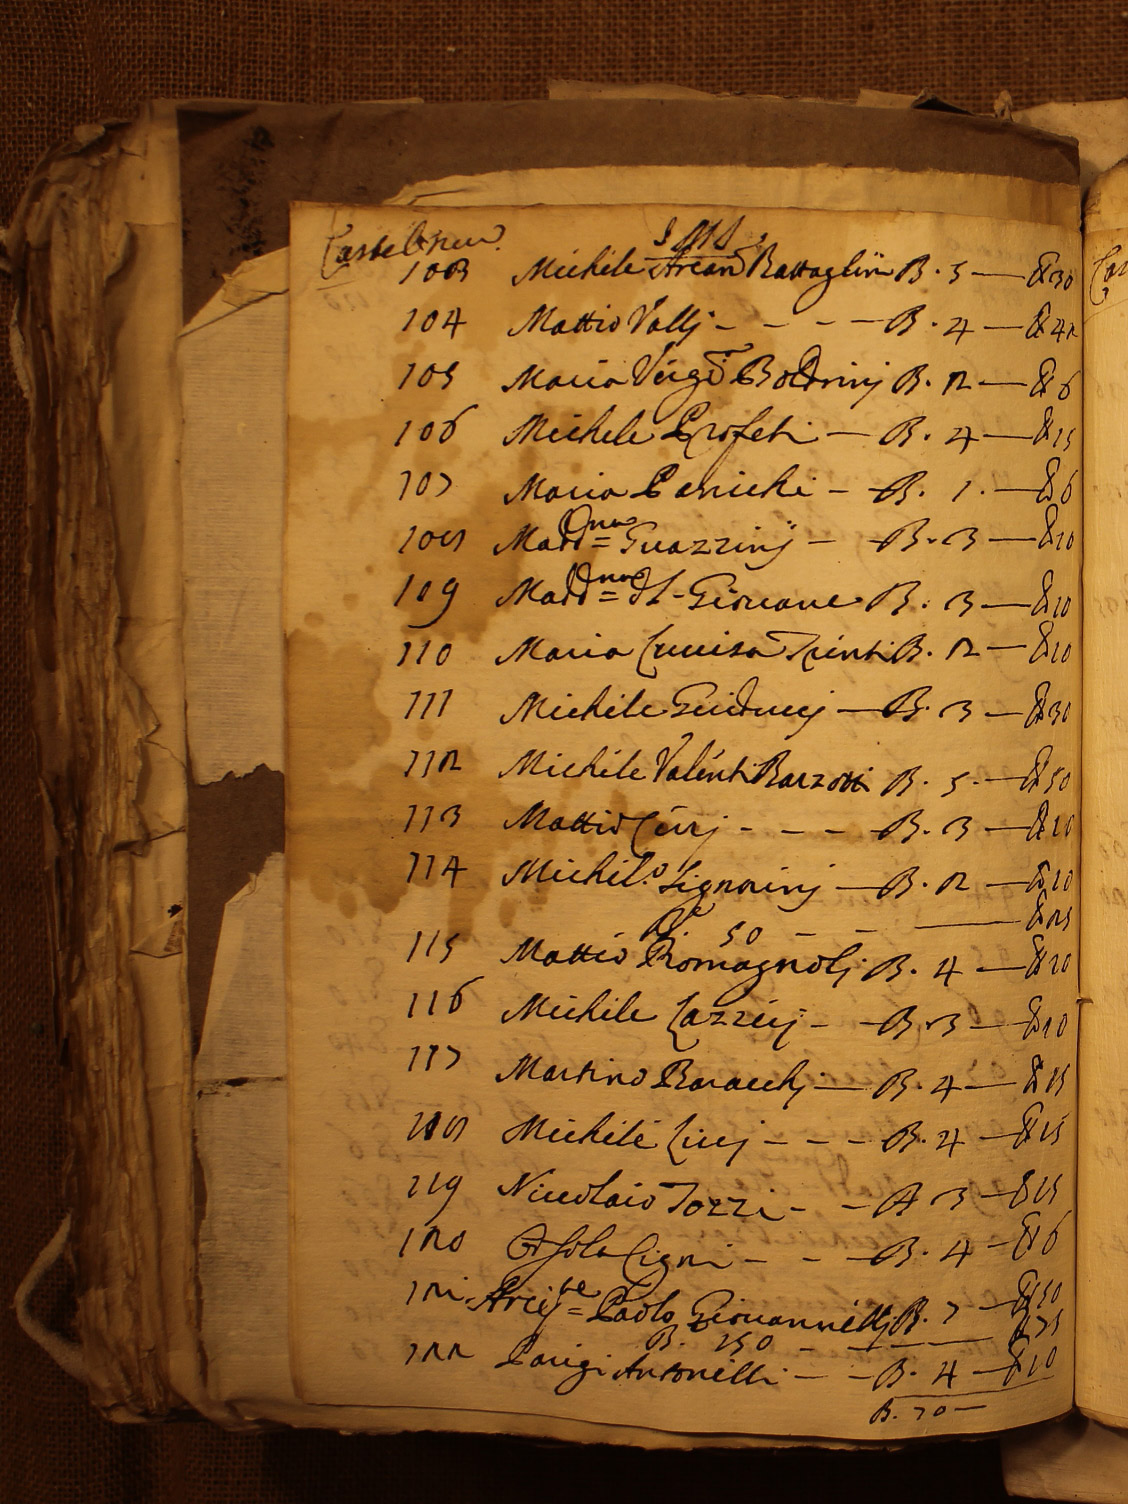 Castelnuo.
103 Michele Arcan Battaglin B. 5 — & 30
104 Mattio Vallj - - - - B. 4 — & 42
105 Maria Virga Boldrinj B. 2 — & 6
106 Michele Profeti — B. 4 — & 15
107 Maria Panichi — B. 1. — & 6
108 Madd.na = Guazzinj — B. 3 — & 10
109 Madd.na = di S. Giovane B. 3 — & 10
110 Maria Luuisa Trinti B. 2 — & 10
111 Michele Guiducij — B. 3 — & 30
112 Michele Valenti Barzotti B. 5 — & 50
113 Mattio Curj - - - B. 3 — & 10
114 Michel.o Signorinj — B. 2 — & 10
50 - - — & 25
115 Mattio Romagnolj B. 4 — & 20
116 Michele Lazzerj - - B. 3 — & 10
117 Martino Baracchj — B. 4 — & 15
118 Michele Lucj - - - B. 4 — & 15
119 Nicolaio Tozzi - - 3 — & 15
120 Orsola Cigni - - - B. 4 — & 6
121 Paolo Giovannellj B. 7 — & 150
B. 150 - — & 75
122 Parigi Antonelli - - B. 4 — & 10
B. 70 —